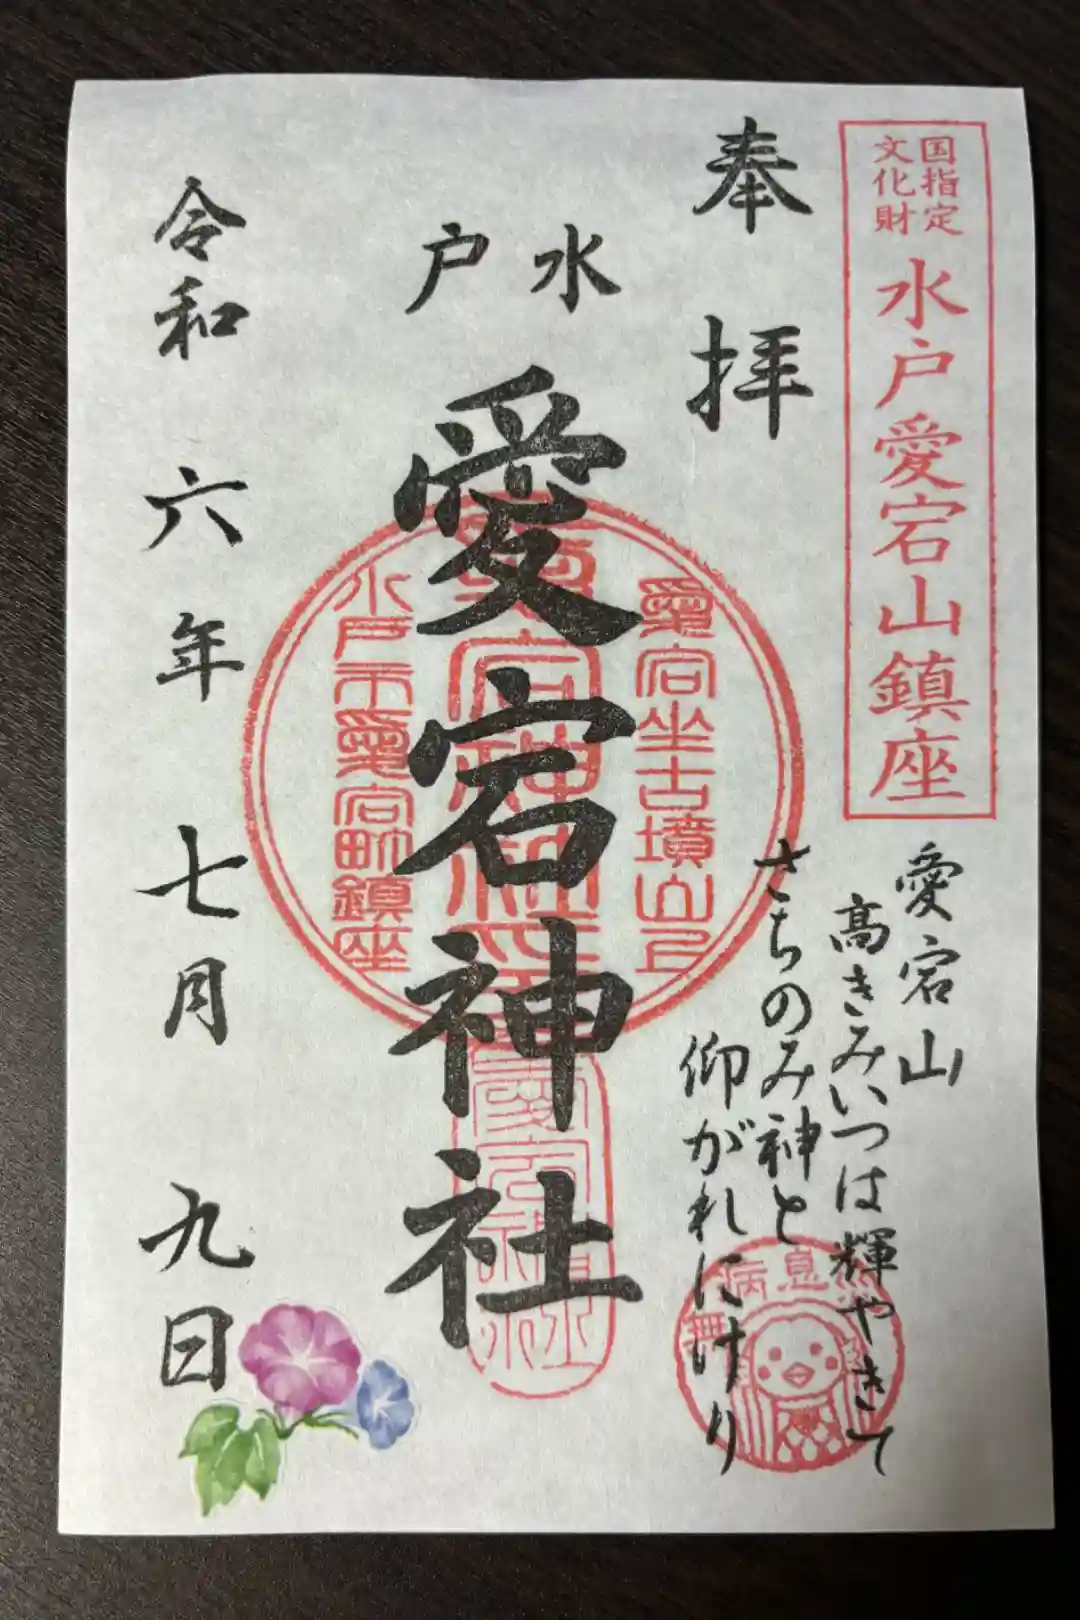 国指定
文化財
水戸愛宕山鎮座
奉拝
愛宕山
高きみいつは輝やきて
さちのみ神と
仰がれにけり
無病息
水戸
愛宕神社
愛宕坐古墳山上
愛宕神社
水戸市愛宕町鎮座
愛宕神社
令和六年七月九日